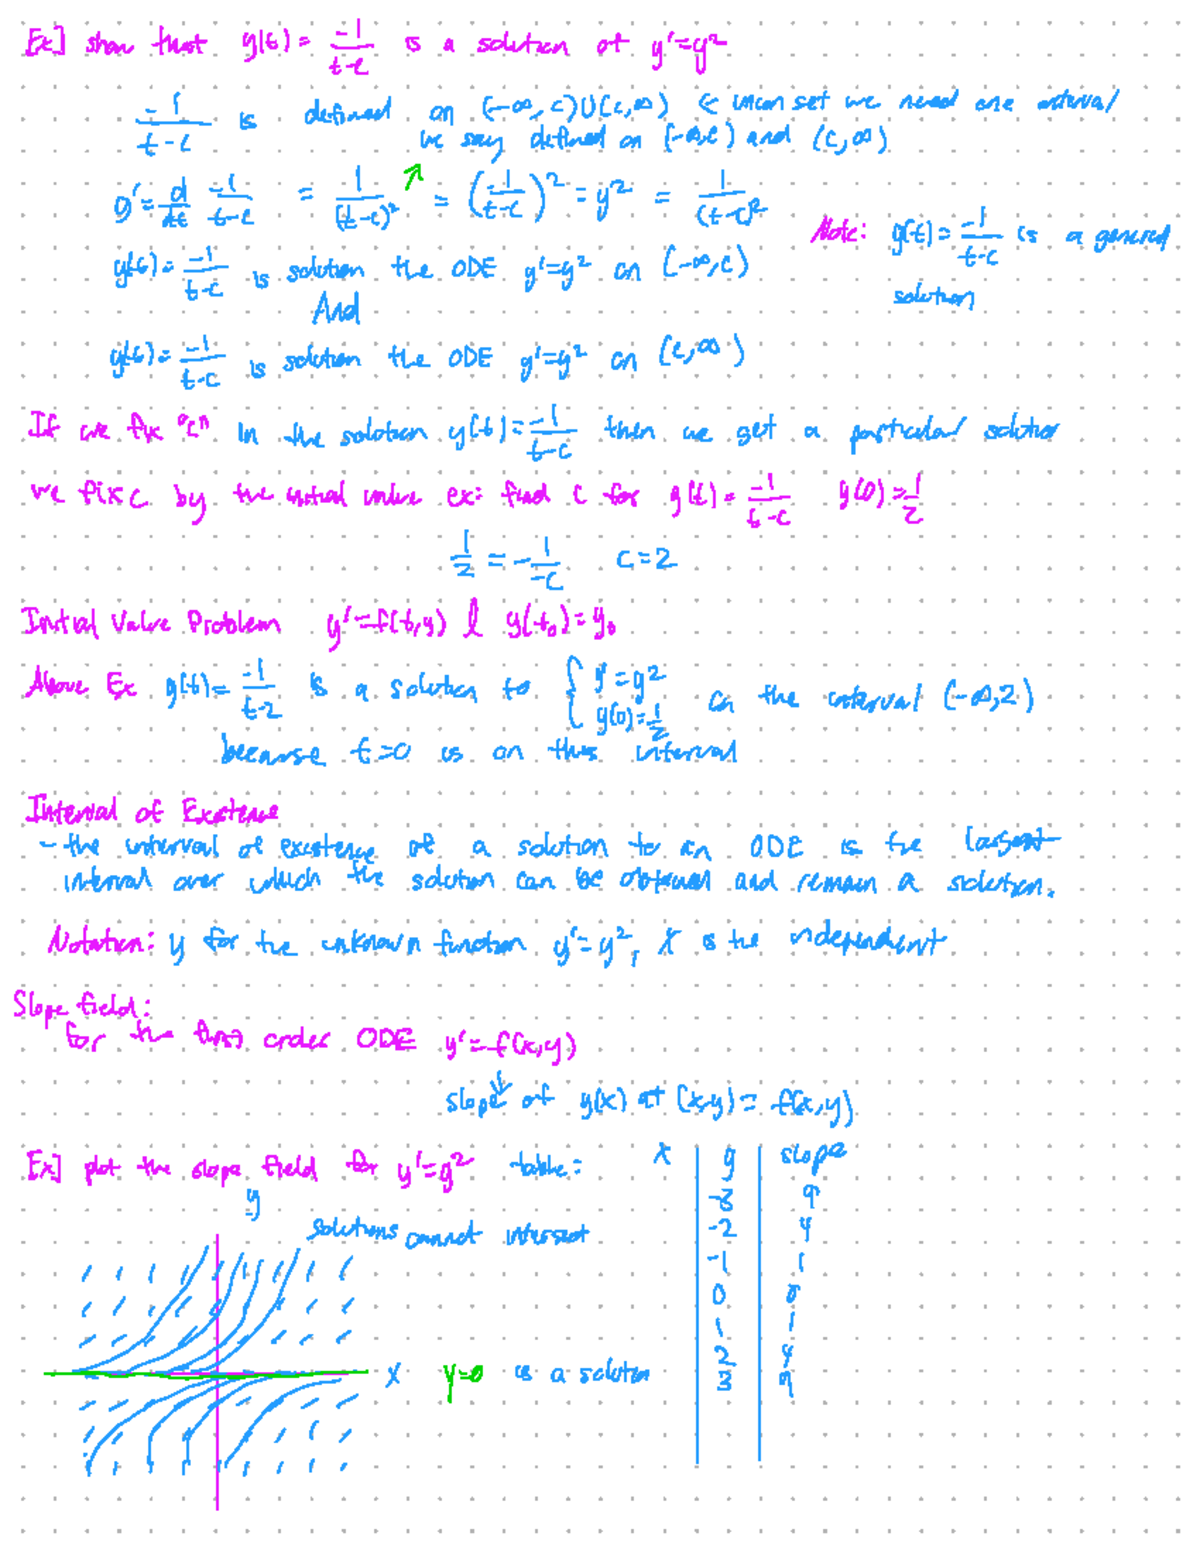 Ex] show that y(t) = -1/(t-c) is a solution of y'=y²
-1/(t-c) is defined on (-∞,c)∪(c,∞) ← union set we need one interval
we say defined on (-∞,c) and (c,∞)
y' = d/dt -1/(t-c) = 1/(t-c)² = (-1/(t-c))² = y² = 1/(t-c)²
Note: y(t) = -1/(t-c) is a general
solution
y(t) = -1/(t-c) is solution the ODE y'=y² on (-∞,c)
And
y(t) = -1/(t-c) is solution the ODE y'=y² on (c,∞)
If we fix "c" In the solution y(t) = -1/(t-c) then we get a particular solution
we fix c by the initial value ex: find c for y(t) = -1/(t-c) y(0) = 1/2
1/2 = -1/-c c=2
Initial Value Problem y'=f(t,y) & y(t₀)=y₀
Above Ex y(t) = -1/(t-2) is a solution to { y'=y² y(0)=1/2 on the interval (-∞,2)
because t=0 is on this interval
Interval of Existence
- the interval of existence of a solution to an ODE is the largest
interval over which the solution can be obtained and remain a solution.
Notation: y for the unknown function y'=y², x is the independent
Slope field:
for the first order ODE y'=f(x,y)
slope of y(x) at (x,y) = f(x,y)
Ex] plot the slope field for y'=y² table:
x y slope
-3 9
-2 4
-1 1
0 0
1 1
2 4
3 9
y
solutions cannot intersect
x y=0 is a solution